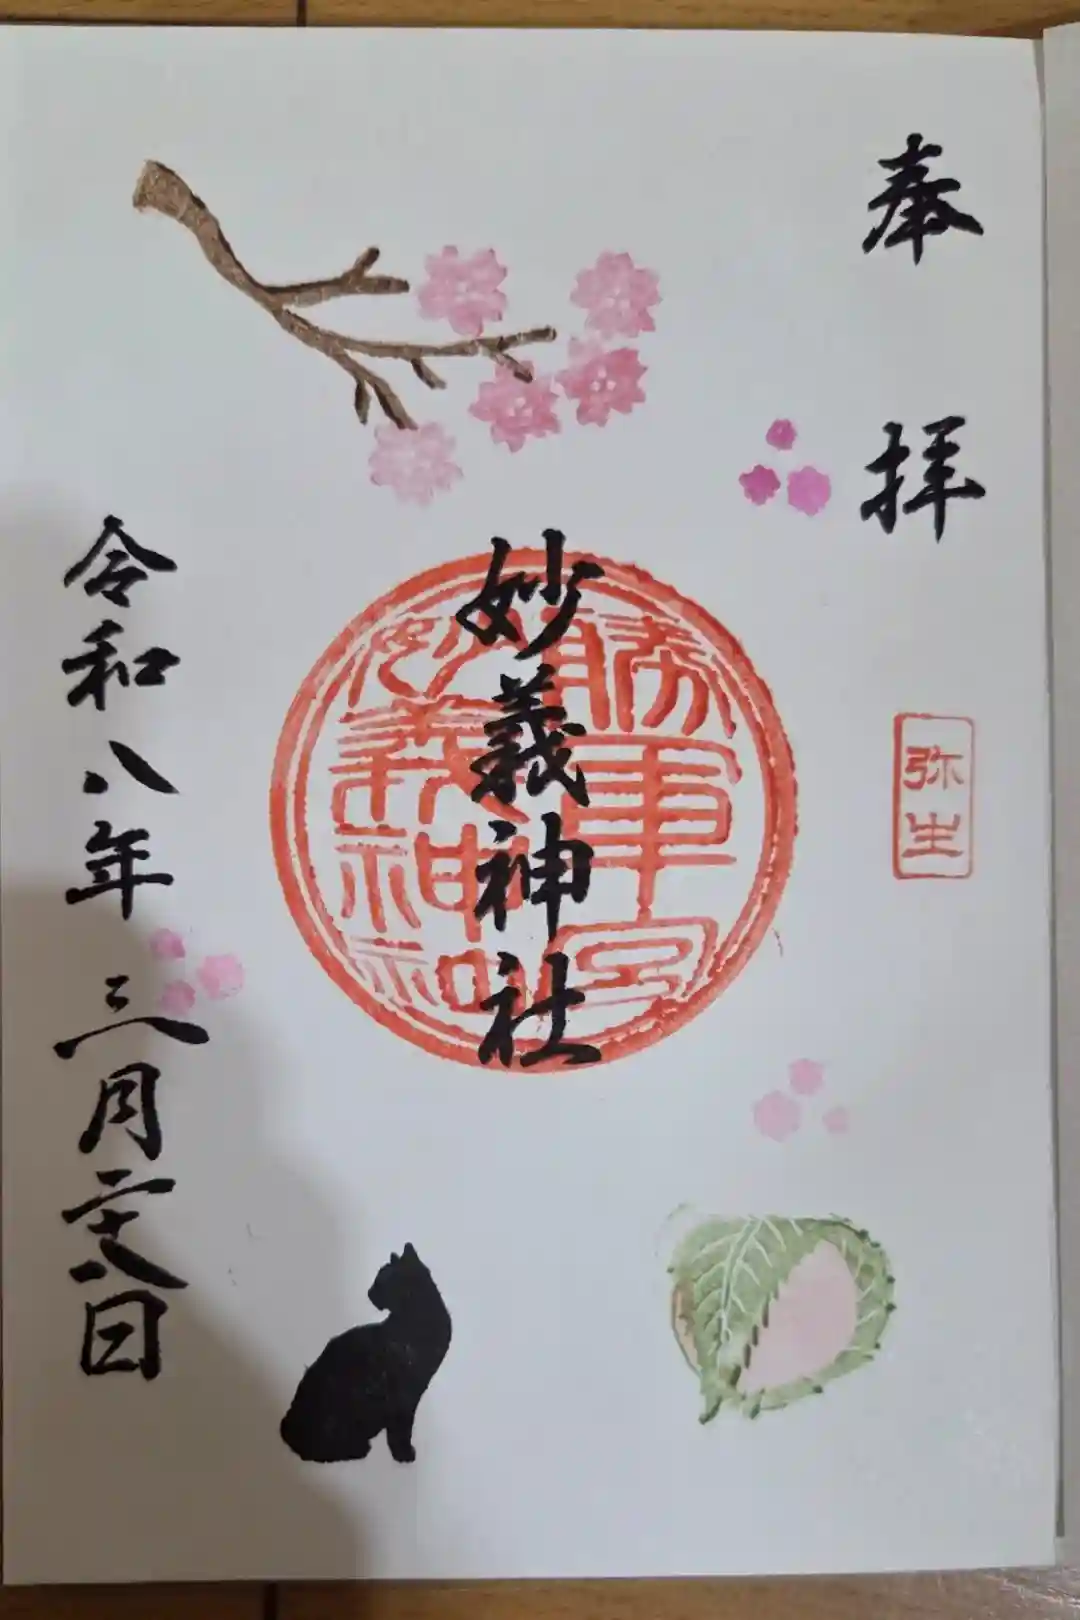 奉拝
弥生
妙義神社
勝軍宮
妙義神社
令和八年三月二十八日